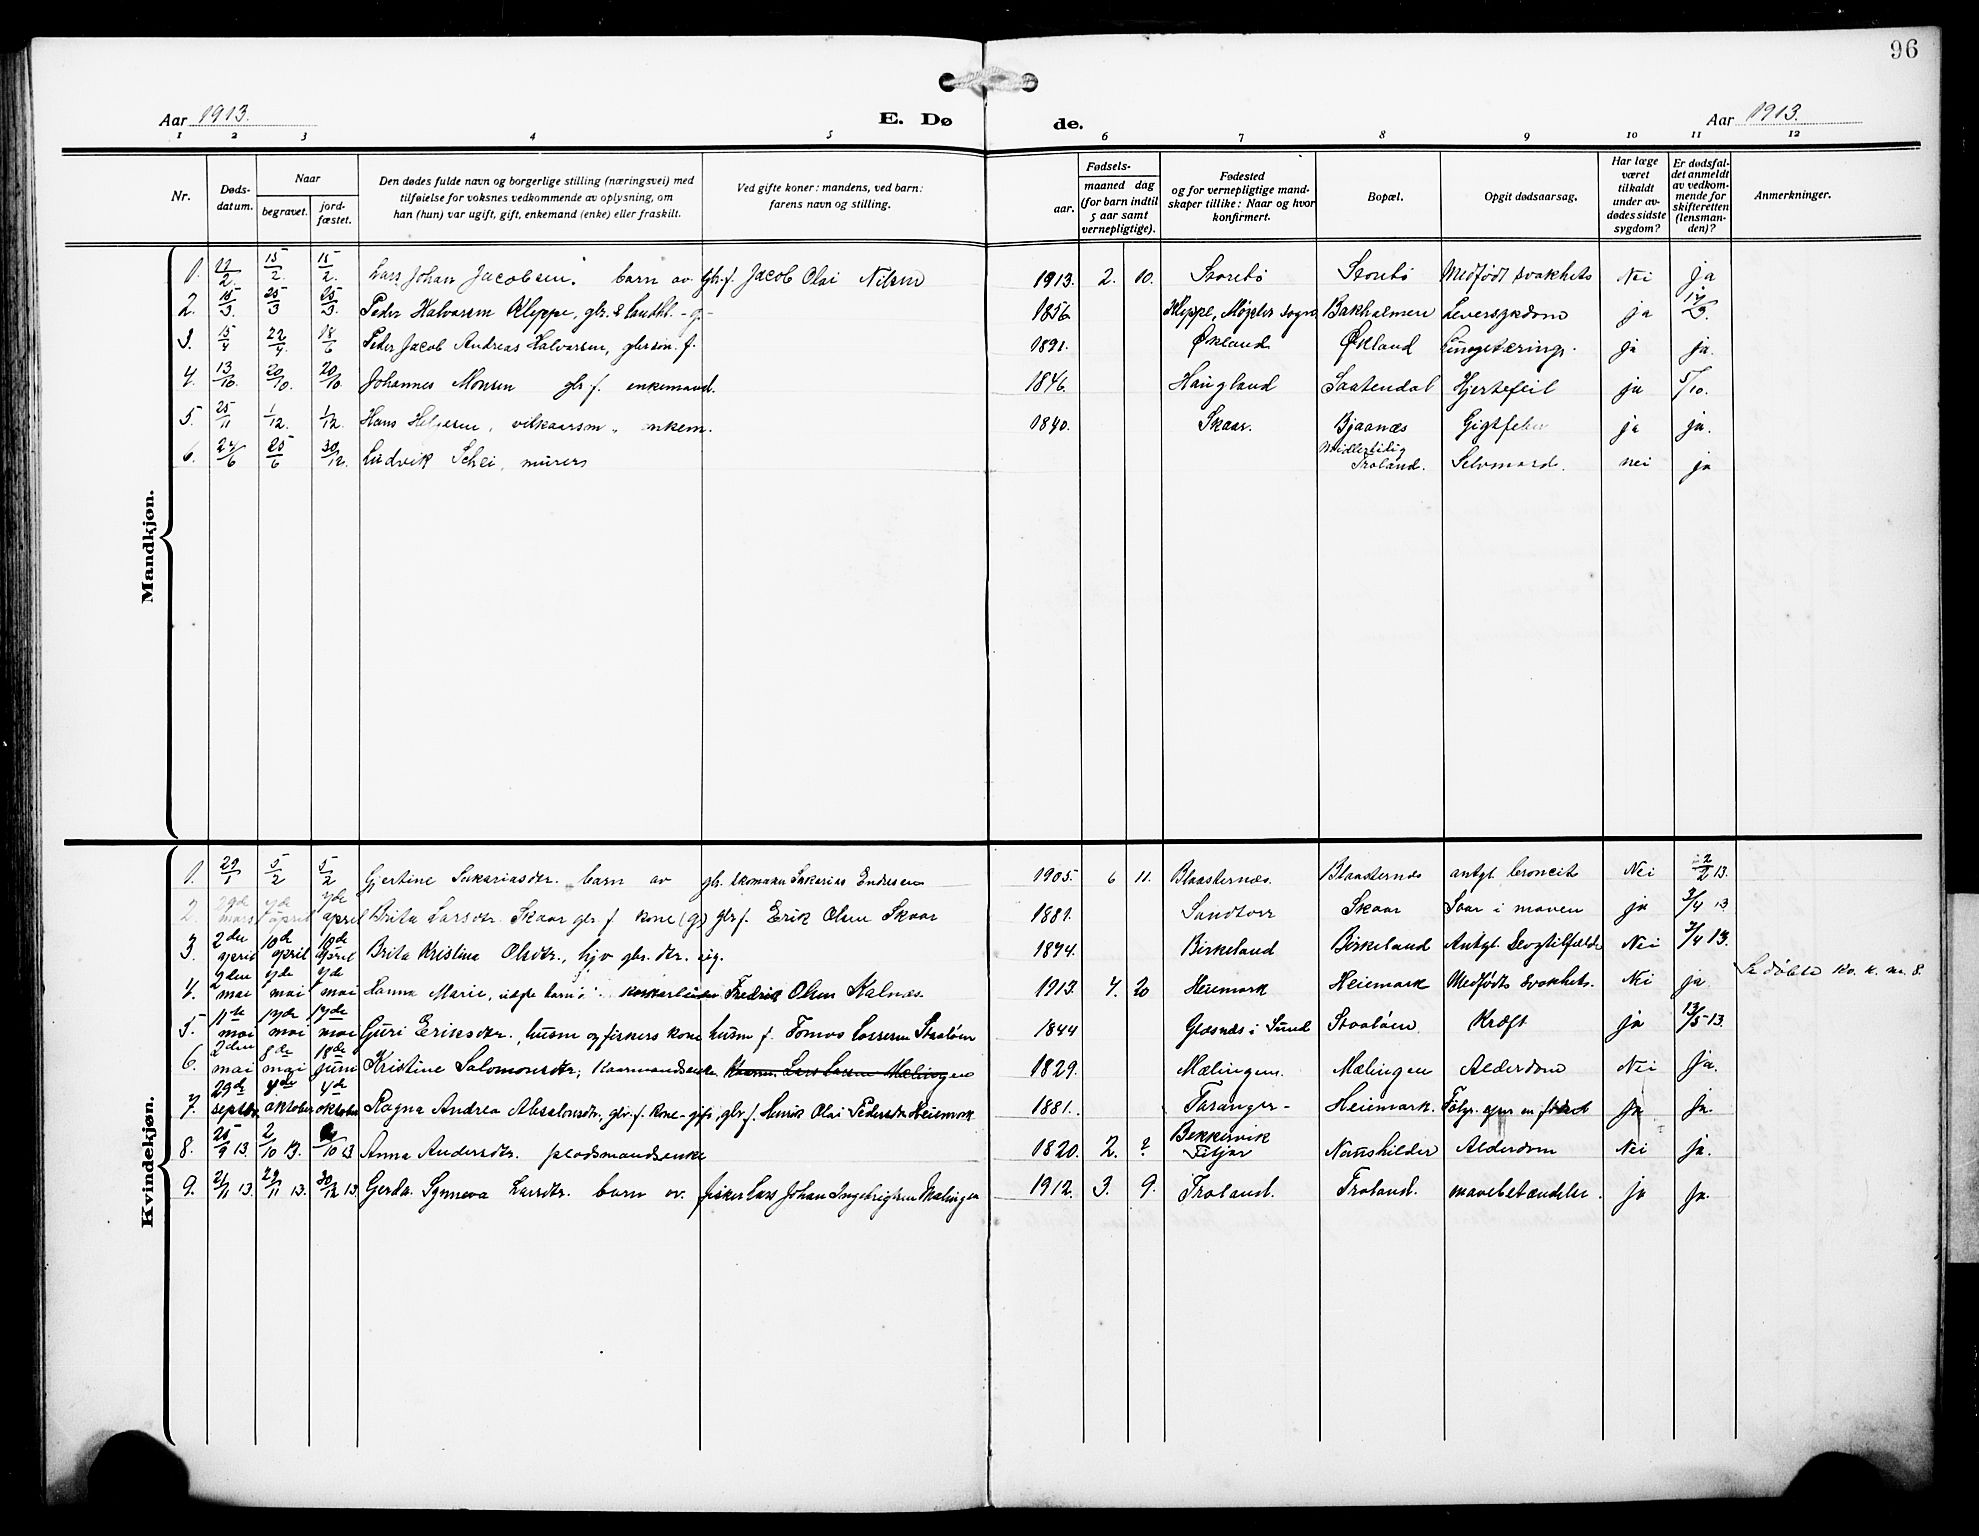 96
Aar 1913. E. Dø de. Aar 1913.
1 2 3 4 5 6 7 8 9 10 11 12
Nr.
Døds-
datum.
Naar
begravet.
jord-
fæstet.
Den dødes fulde navn og borgerlige stilling (næringsvei) med
tilføielse for voksnes vedkommende av oplysning, om
han (hun) var ugift, gift, enkemand (enke) eller fraskilt.
Ved gifte koner: mandens, ved barn:
farens navn og stilling.
Fødsels-
aar.
maaned dag
(for barn indtil
5 aar samt
vernepligtige).
Fødested
og for vernepligtige mand-
skaper tillike: Naar og hvor
konfirmert.
Bopæl.
Opgit dødsaarsag.
Har læge
været
tilkaldt
under av-
dødes sidste
sygdom?
Er dødsfal-
det anmeldt
av vedkom-
mende for
skifteretten
(lensman-
den)?
Anmerkninger.
Mandkjøn.
1. 15/2 15/2. Lars Johan Jacobsen. barn av gbr.f. Jacob Olai Nilsen 1913. 2. 10. Storebø Storebø Medfødt svakhets Nei ja
2. 15/3. 25/3 25/3. Peder Halvorsen Kleppe, gbr. & Landhl. - g - 1856 Kleppe, Møgster sogn Bakholmen Leversygdom ja
3. 15/4 22/4. 18/6 Peder Jacob Andreas Halvorsen, gbr.søn. f. 1891. Økland Økland Lungetærings. ja ja.
4. 13/10. 20/10. 20/10 Johannes Monsen gbr f. enkemand. 1846. Haugland Saatendal Hjertefeil ja 5/10.
5. 25/11 1/12. 1/12. Hans enkem. 1840. Skaar. Bjaanæs Gigtfeber ja ja.
6. 24/6 25/6 30/12. Ludvik Schei, murers Midlertidig
Troland. Selvmord. nei ja
Kvindekjøn.
1. 29/1 5/2 5/2 Gjertine Sakariasdtr. barn av gbr. skomaker Sakarias Endresen 1905. 6 11. Blaasternæs. Blaasternæs antgl. broncit Nei 2/2 13.
2. 29de mars april april Brita Larsdtr. Skaar gbr. f. kone (g) gbr f. Erik Olsen Skaar 1881. Sandtorv Skaar Saar i maven ja 3/4 13
3. 2den april 10de april 10de april Brita Kristina Olsdtr., hjv gbr. dtr. ug. 1874. Birkeland Birkeland Antgl. Slagtilfælde Nei 3/4 13.
4. 2den mai mai mai Hanna Marie, Fredrik Olsen Kalnæs. 1913. 4. 20 Heiemark Heiemark Medfødt svakhet. Nei ja. Se døbte kv. k. nr. 8.
5. 11te mai 17de mai 17de mai Guri Eriksdtr., husm og fiskers kone husm f. Tomas Lassesen Staaløen 1844 Glesnæs i Sund Staaløen Kræft ja 13/5 13.
6. 2den mai 8de mai 18de juni Kristine Salomonsdtr, kaarmandsenke Lars Larsen Mælingen 1829. Mælingen. Mælingen Alderdom Nei Ja.
7. 29de septbr. 4de oktober 4de oktober Ragna Andrea Absalonsdtr, gbr. f. kone - gift, gbr f. Henrik Olai Heiemark 1881. Taranger - Heiemark. Følger efter en fødsel Ja Ja.
8. 25/9 13. 2/10 13. /10 13 Anna Andersdtr. pladsmandsenke 1820. 2. ? Bekkervik
Fitjar Naushilder Alderdom Nei Ja.
9. 21/11 13. 29/11 13. 30/12 13 Gerda Synneva Larsdtr. barn av. fisker Lars Johan Ingebrigtsen Mælingen 1912. 3. 9. Troland. Troland. mavebetændelse. ja Ja.